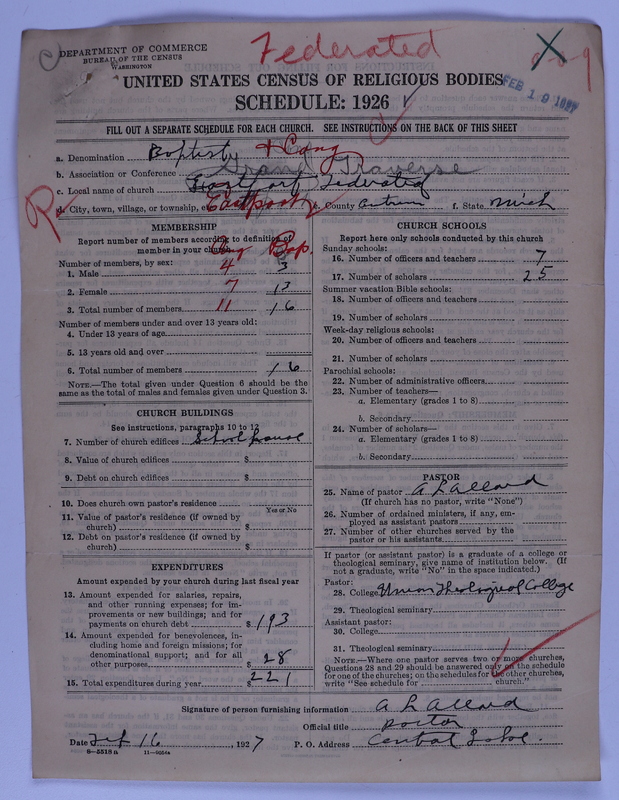 DEPARTMENT OF COMMERCE
BUREAU OF THE CENSUS
WASHINGTON
Federated
FEB 19 1927
UNITED STATES CENSUS OF RELIGIOUS BODIES
SCHEDULE: 1926
FILL OUT A SEPARATE SCHEDULE FOR EACH CHURCH. SEE INSTRUCTIONS ON THE BACK OF THIS SHEET
a. Denomination Baptist + Cong
b. Association or Conference Grand Traverse
c. Local name of church Eastport Federated
d. City, town, village, or township, etc. Eastport e. County Antrim f. State Mich
MEMBERSHIP
Report number of members according to definition of
member in your church
Cong Bap.
Number of members, by sex:
1. Male 4 3
2. Female 7 13
3. Total number of members 11 16
Number of members under and over 13 years old:
4. Under 13 years of age
5. 13 years old and over
6. Total number of members 16
NOTE.—The total given under Question 6 should be the
same as the total of males and females given under Question 3.
CHURCH BUILDINGS
See instructions, paragraphs 10 to 12
7. Number of church edifices School house
8. Value of church edifices $
9. Debt on church edifices $
10. Does church own pastor's residence
Yes or No
11. Value of pastor's residence (if owned by
church) $
12. Debt on pastor's residence (if owned by
church) $
EXPENDITURES
Amount expended by your church during last fiscal year
13. Amount expended for salaries, repairs,
and other running expenses; for im-
provements or new buildings; and for
payments on church debt $ 193
14. Amount expended for benevolences, in-
cluding home and foreign missions; for
denominational support; and for all
other purposes $ 28
15. Total expenditures during year $ 221
CHURCH SCHOOLS
Report here only schools conducted by this church
Sunday schools:
16. Number of officers and teachers 7
17. Number of scholars 25
Summer vacation Bible schools:
18. Number of officers and teachers
19. Number of scholars
Week-day religious schools:
20. Number of officers and teachers
21. Number of scholars
Parochial schools:
22. Number of administrative officers
23. Number of teachers—
a. Elementary (grades 1 to 8)
b. Secondary
24. Number of scholars—
a. Elementary (grades 1 to 8)
b. Secondary
PASTOR
25. Name of pastor A L Allard
(If church has no pastor, write "None")
26. Number of ordained ministers, if any, em-
ployed as assistant pastors
27. Number of other churches served by the
pastor or his assistants
If pastor (or assistant pastor) is a graduate of a college or
theological seminary, give name of institution below. (If
not a graduate, write "No" in the space indicated.)
Pastor:
28. College Union Theological College
29. Theological seminary
Assistant pastor:
30. College
31. Theological seminary
NOTE.—Where one pastor serves two or more churches,
Questions 28 and 29 should be answered only on the schedule
for one of the churches; on the schedules for the other churches,
write "See schedule for church."
Signature of person furnishing information A L Allard
Official title Pastor
Date Feb 16, 1927 P. O. Address Central Lake.
8—5518a 11—9024a